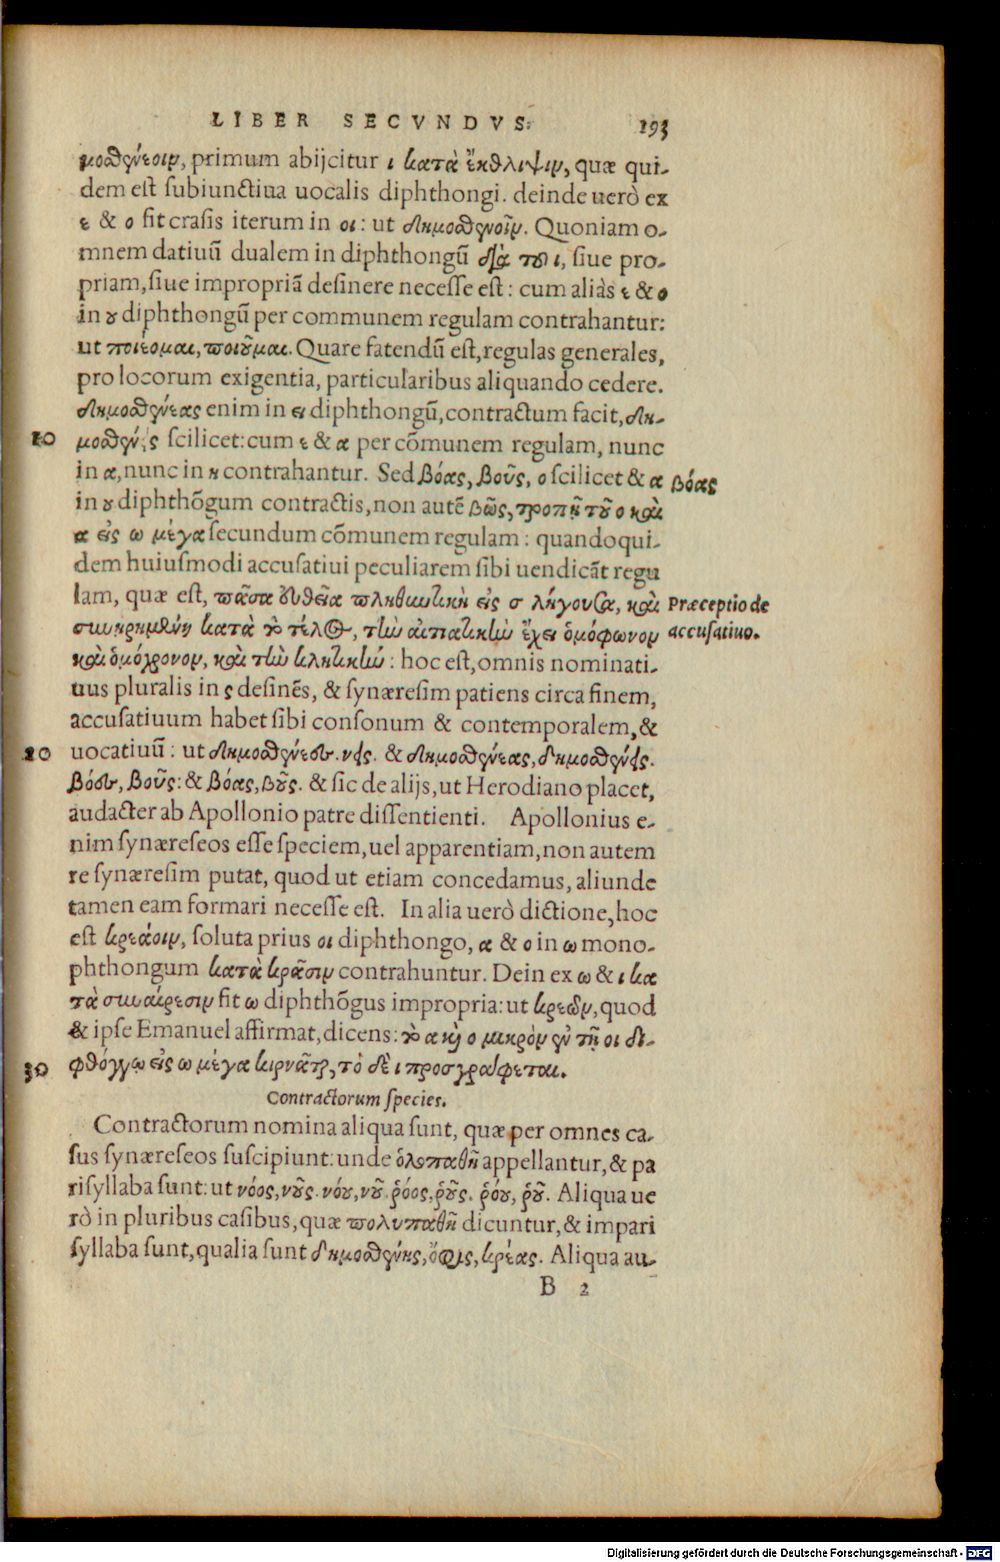 LIBER SECVNDVS. 193
μοσθένεοιν, primum abijcitur ι κατὰ ἔκθλιψιν, quæ qui-
dem est subiunctiua uocalis diphthongi. deinde uerò ex
ε & ο fit crasis iterum in οι: ut δημοσθενοῖν. Quoniam o-
mnem datiuũ dualem in diphthongũ διὰ τοῦ ι, siue pro-
priam, siue impropriã desinere necesse est: cum aliàs ε & ο
in ȣ diphthongũ per communem regulam contrahantur:
ut ποιέομαι, ποιοῦμαι. Quare fatendũ est, regulas generales,
pro locorum exigentia, particularibus aliquando cedere.
δημοσθένεας enim in ει diphthongũ, contractum facit, δη-
10 μοσθένεις scilicet: cum ε & α per cõmunem regulam, nunc
in α, nunc in η contrahantur. Sed βόας, βοῦς, ο scilicet & α
βόας
in ȣ diphthõgum contractis, non autẽ βῶς, τροπῇ τοῦ ο καὶ
α εἰς ω μέγα secundum cõmunem regulam: quandoqui-
dem huiusmodi accusatiui peculiarem sibi uendicãt regu
lam, quæ est, πᾶσα εὐθεῖα πληθυντικὴ εἰς σ λήγουσα, καὶ
Præceptio de
συνῃρημένη κατὰ τὸ τέλος, τὴν αἰτιατικὴν ἔχει ὁμόφωνον
accusatiuo.
καὶ ὁμόχρονον, καὶ τὴν κλητικήν: hoc est, omnis nominati-
uus pluralis in ς desinẽs, & synæresim patiens circa finem,
accusatiuum habet sibi consonum & contemporalem, &
20 uocatiuũ: ut δημοσθένεες. νεῖς. & δημοσθένεας, δημοσθένεῖς.
βόες, βοῦς: & βόας, βοῦς. & sic de alijs, ut Herodiano placet,
audacter ab Apollonio patre dissentienti. Apollonius e-
nim synæreseos esse speciem, uel apparentiam, non autem
re synæresim putat, quod ut etiam concedamus, aliunde
tamen eam formari necesse est. In alia uerò dictione, hoc
est κρεάοιν, soluta prius οι diphthongo, α & ο in ω mono-
phthongum κατὰ κρᾶσιν contrahuntur. Dein ex ω & ι κα
τὰ συναίρεσιν fit ῳ diphthõgus impropria: ut κρεῷν, quod
& ipse Emanuel affirmat, dicens: τὸ α καὶ ο μικρὸν ἐν τῇ οι δι-
30 φθόγγῳ εἰς ω μέγα κιρνᾶται, τὸ δὲ ι προσγράφεται.
Contractorum species.
Contractorum nomina aliqua sunt, quæ per omnes ca-
sus synæreseos suscipiunt: unde ὁλοπαθῆ appellantur, & pa
risyllaba sunt: ut νόος, νοῦς. νόου, νοῦ. ῥόος, ῥοῦς. ῥόου, ῥοῦ. Aliqua ue
rò in pluribus casibus, quæ πολυπαθῆ dicuntur, & impari
syllaba sunt, qualia sunt δημοσθένης, ὄφις, κρέας. Aliqua au-
B 2
Digitalisierung gefördert durch die Deutsche Forschungsgemeinschaft - DFG